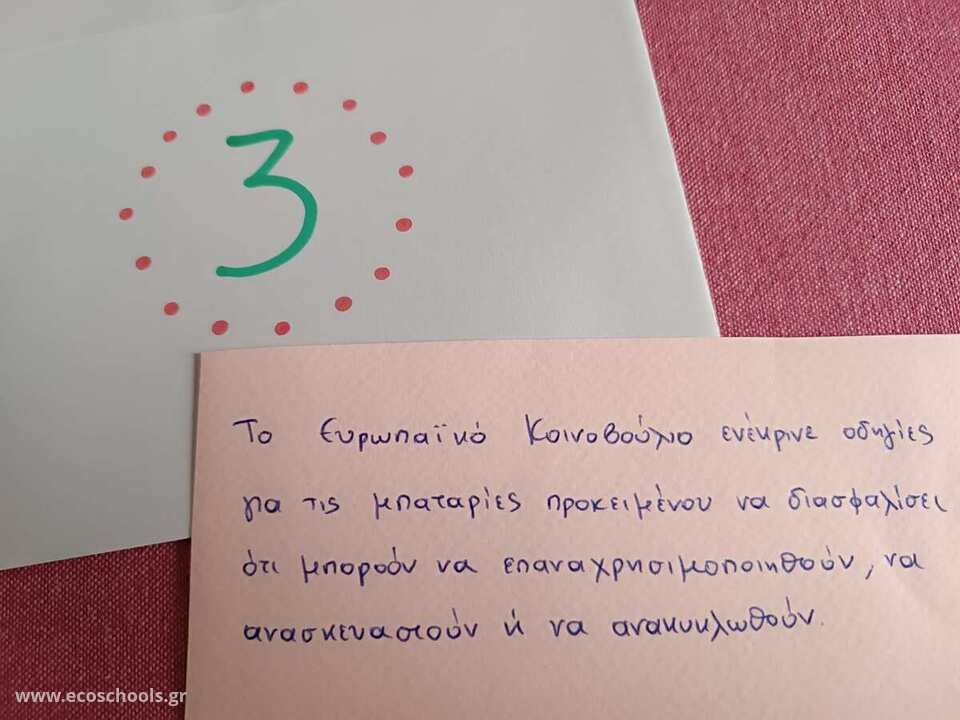 3
Το Ευρωπαϊκό Κοινοβούλιο ενέκρινε οδηγίες
για τις μπαταρίες προκειμένου να διασφαλίσει
ότι μπορούν να επαναχρησιμοποιηθούν, να
ανασκευαστούν ή να ανακυκλωθούν.
www.ecoschools.gr